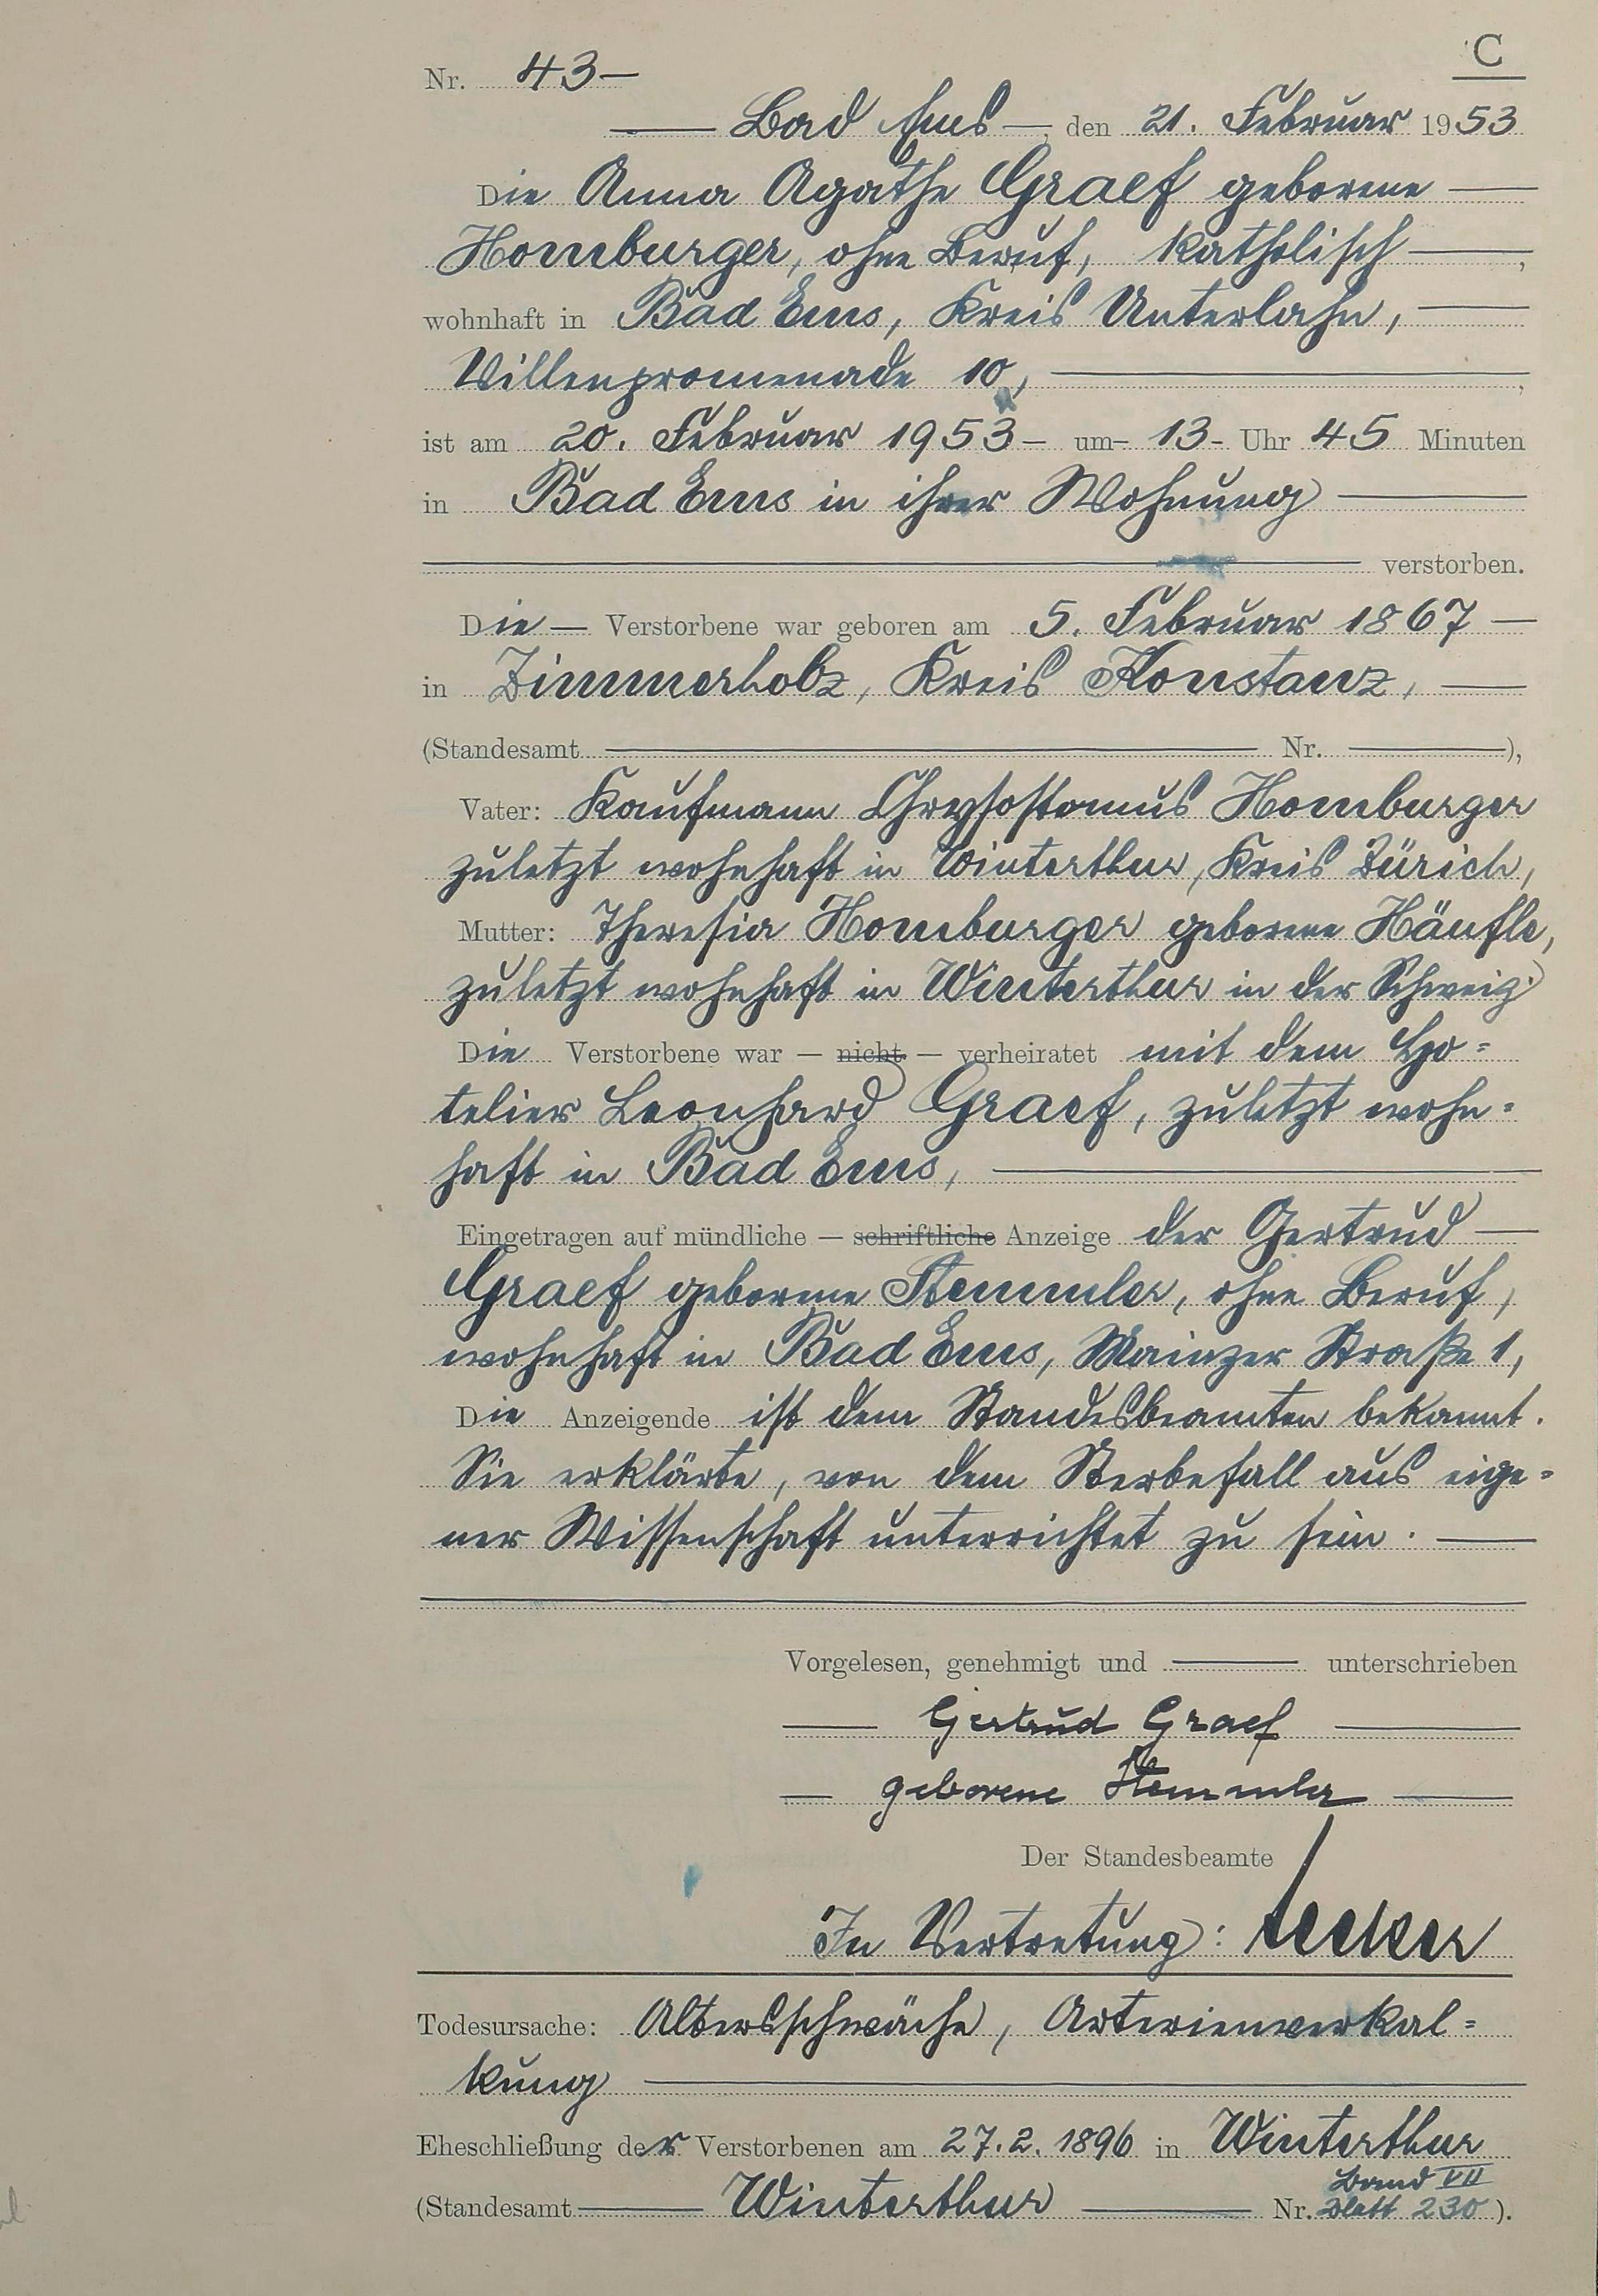 C
Nr. 43-
Bad Ems, den 21. Februar 1953
Die Anna Agathe Graef geborene
Homburger, ohne Beruf, katholisch,
wohnhaft in Bad Ems, Kreis Unterlahn,
Villenpromenade 10,
ist am 20. Februar 1953 um 13 Uhr 45 Minuten
in Bad Ems in ihrer Wohnung
verstorben.
Die Verstorbene war geboren am 5. Februar 1867
in Zimmerholz, Kreis Konstanz,
(Standesamt Nr. ),
Vater: Kaufmann Chrysostomus Homburger
zuletzt wohnhaft in Winterthur, Kreis Zürich,
Mutter: Theresia Homburger geborene Häufle,
zuletzt wohnhaft in Winterthur in der Schweiz.
Die Verstorbene war — nicht — verheiratet mit dem Ho=
telier Leonhard Graef, zuletzt wohn=
haft in Bad Ems,
Eingetragen auf mündliche — schriftliche Anzeige der Gertrud
Graef geborene Stemmler, ohne Beruf,
wohnhaft in Bad Ems, Mainzer Straße 1,
Die Anzeigende ist dem Standesbeamten bekannt.
Sie erklärte, von dem Sterbefall aus eige=
ner Wissenschaft unterrichtet zu sein.
Vorgelesen, genehmigt und unterschrieben
Gertrud Graef
geborene Stemmler
Der Standesbeamte
In Vertretung:
Todesursache: Altersschwäche, Arterienverkal=
kung
Eheschließung der Verstorbenen am 27.2.1896 in Winterthur
Band VII
(Standesamt Winterthur Nr. Blatt 230).